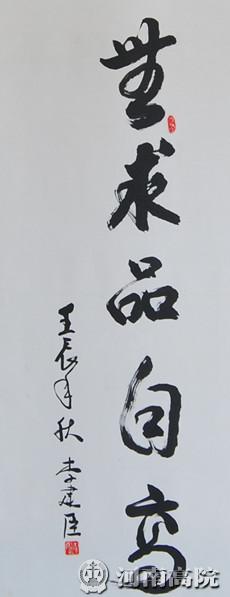 無求品自高
壬辰年秋 李建臣
河南高院